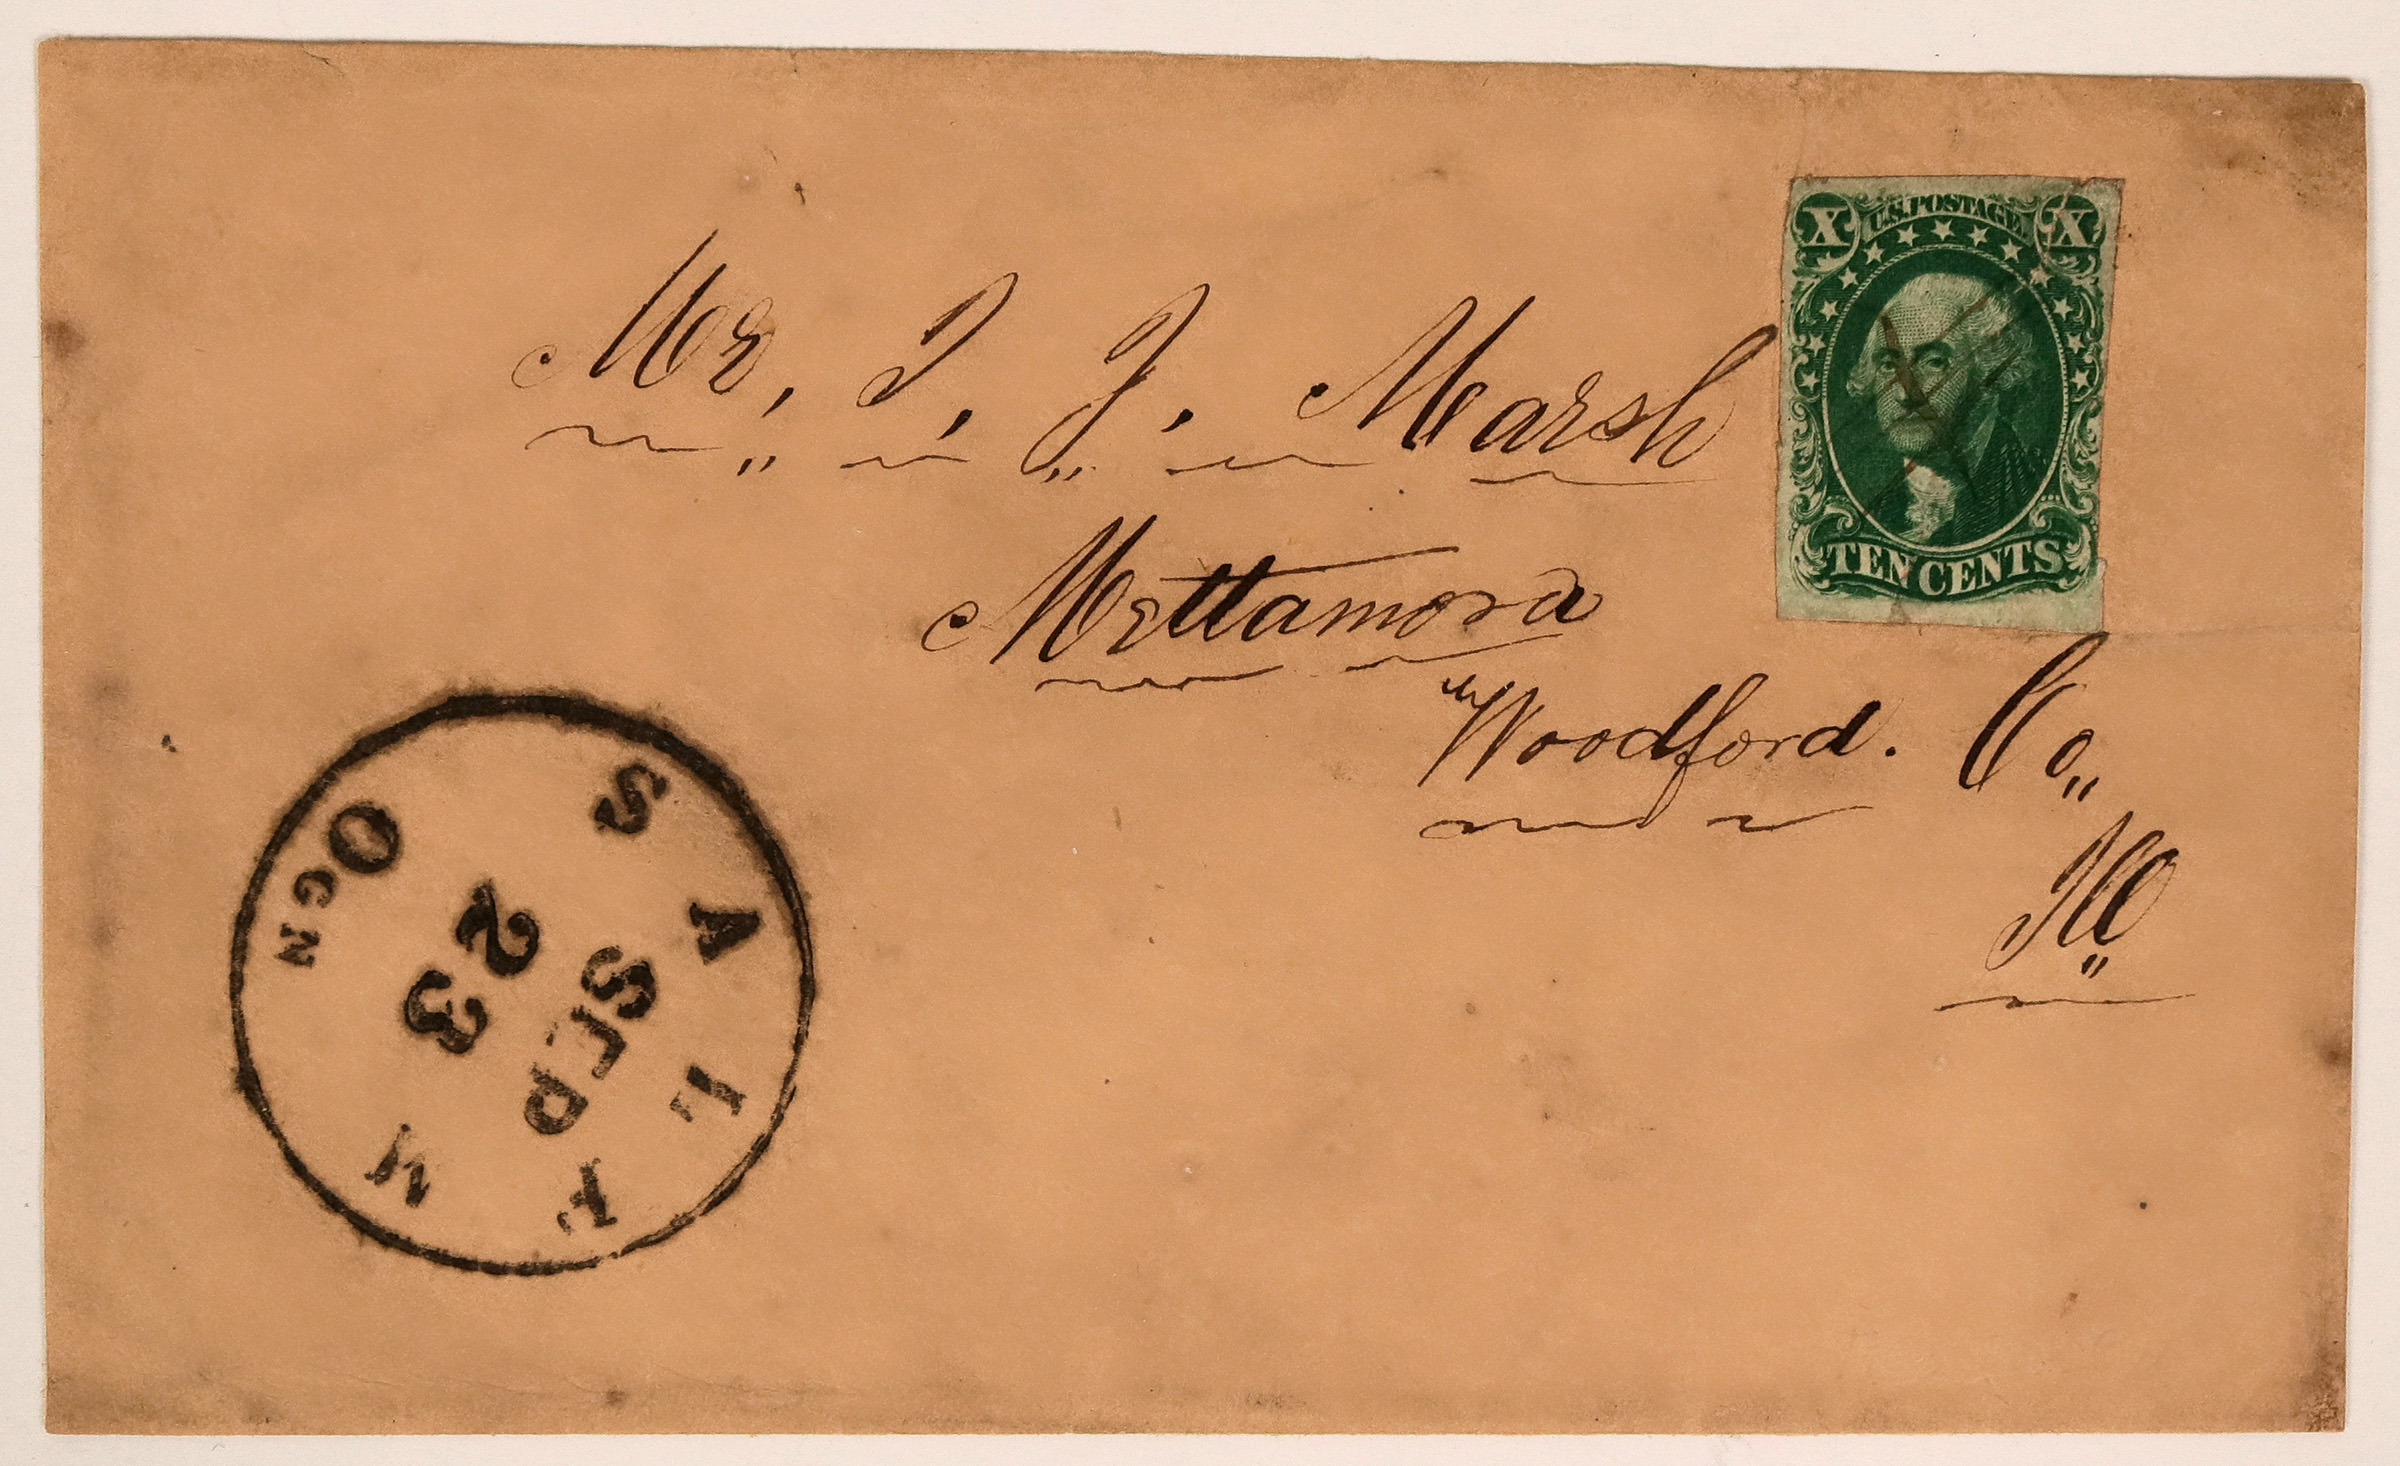 X U.S. POSTAGE X
TEN CENTS
Mr, I. J. Marsh
Mettamora
Woodford. Co,,
Ill
SALEM
SEP
23
OGN